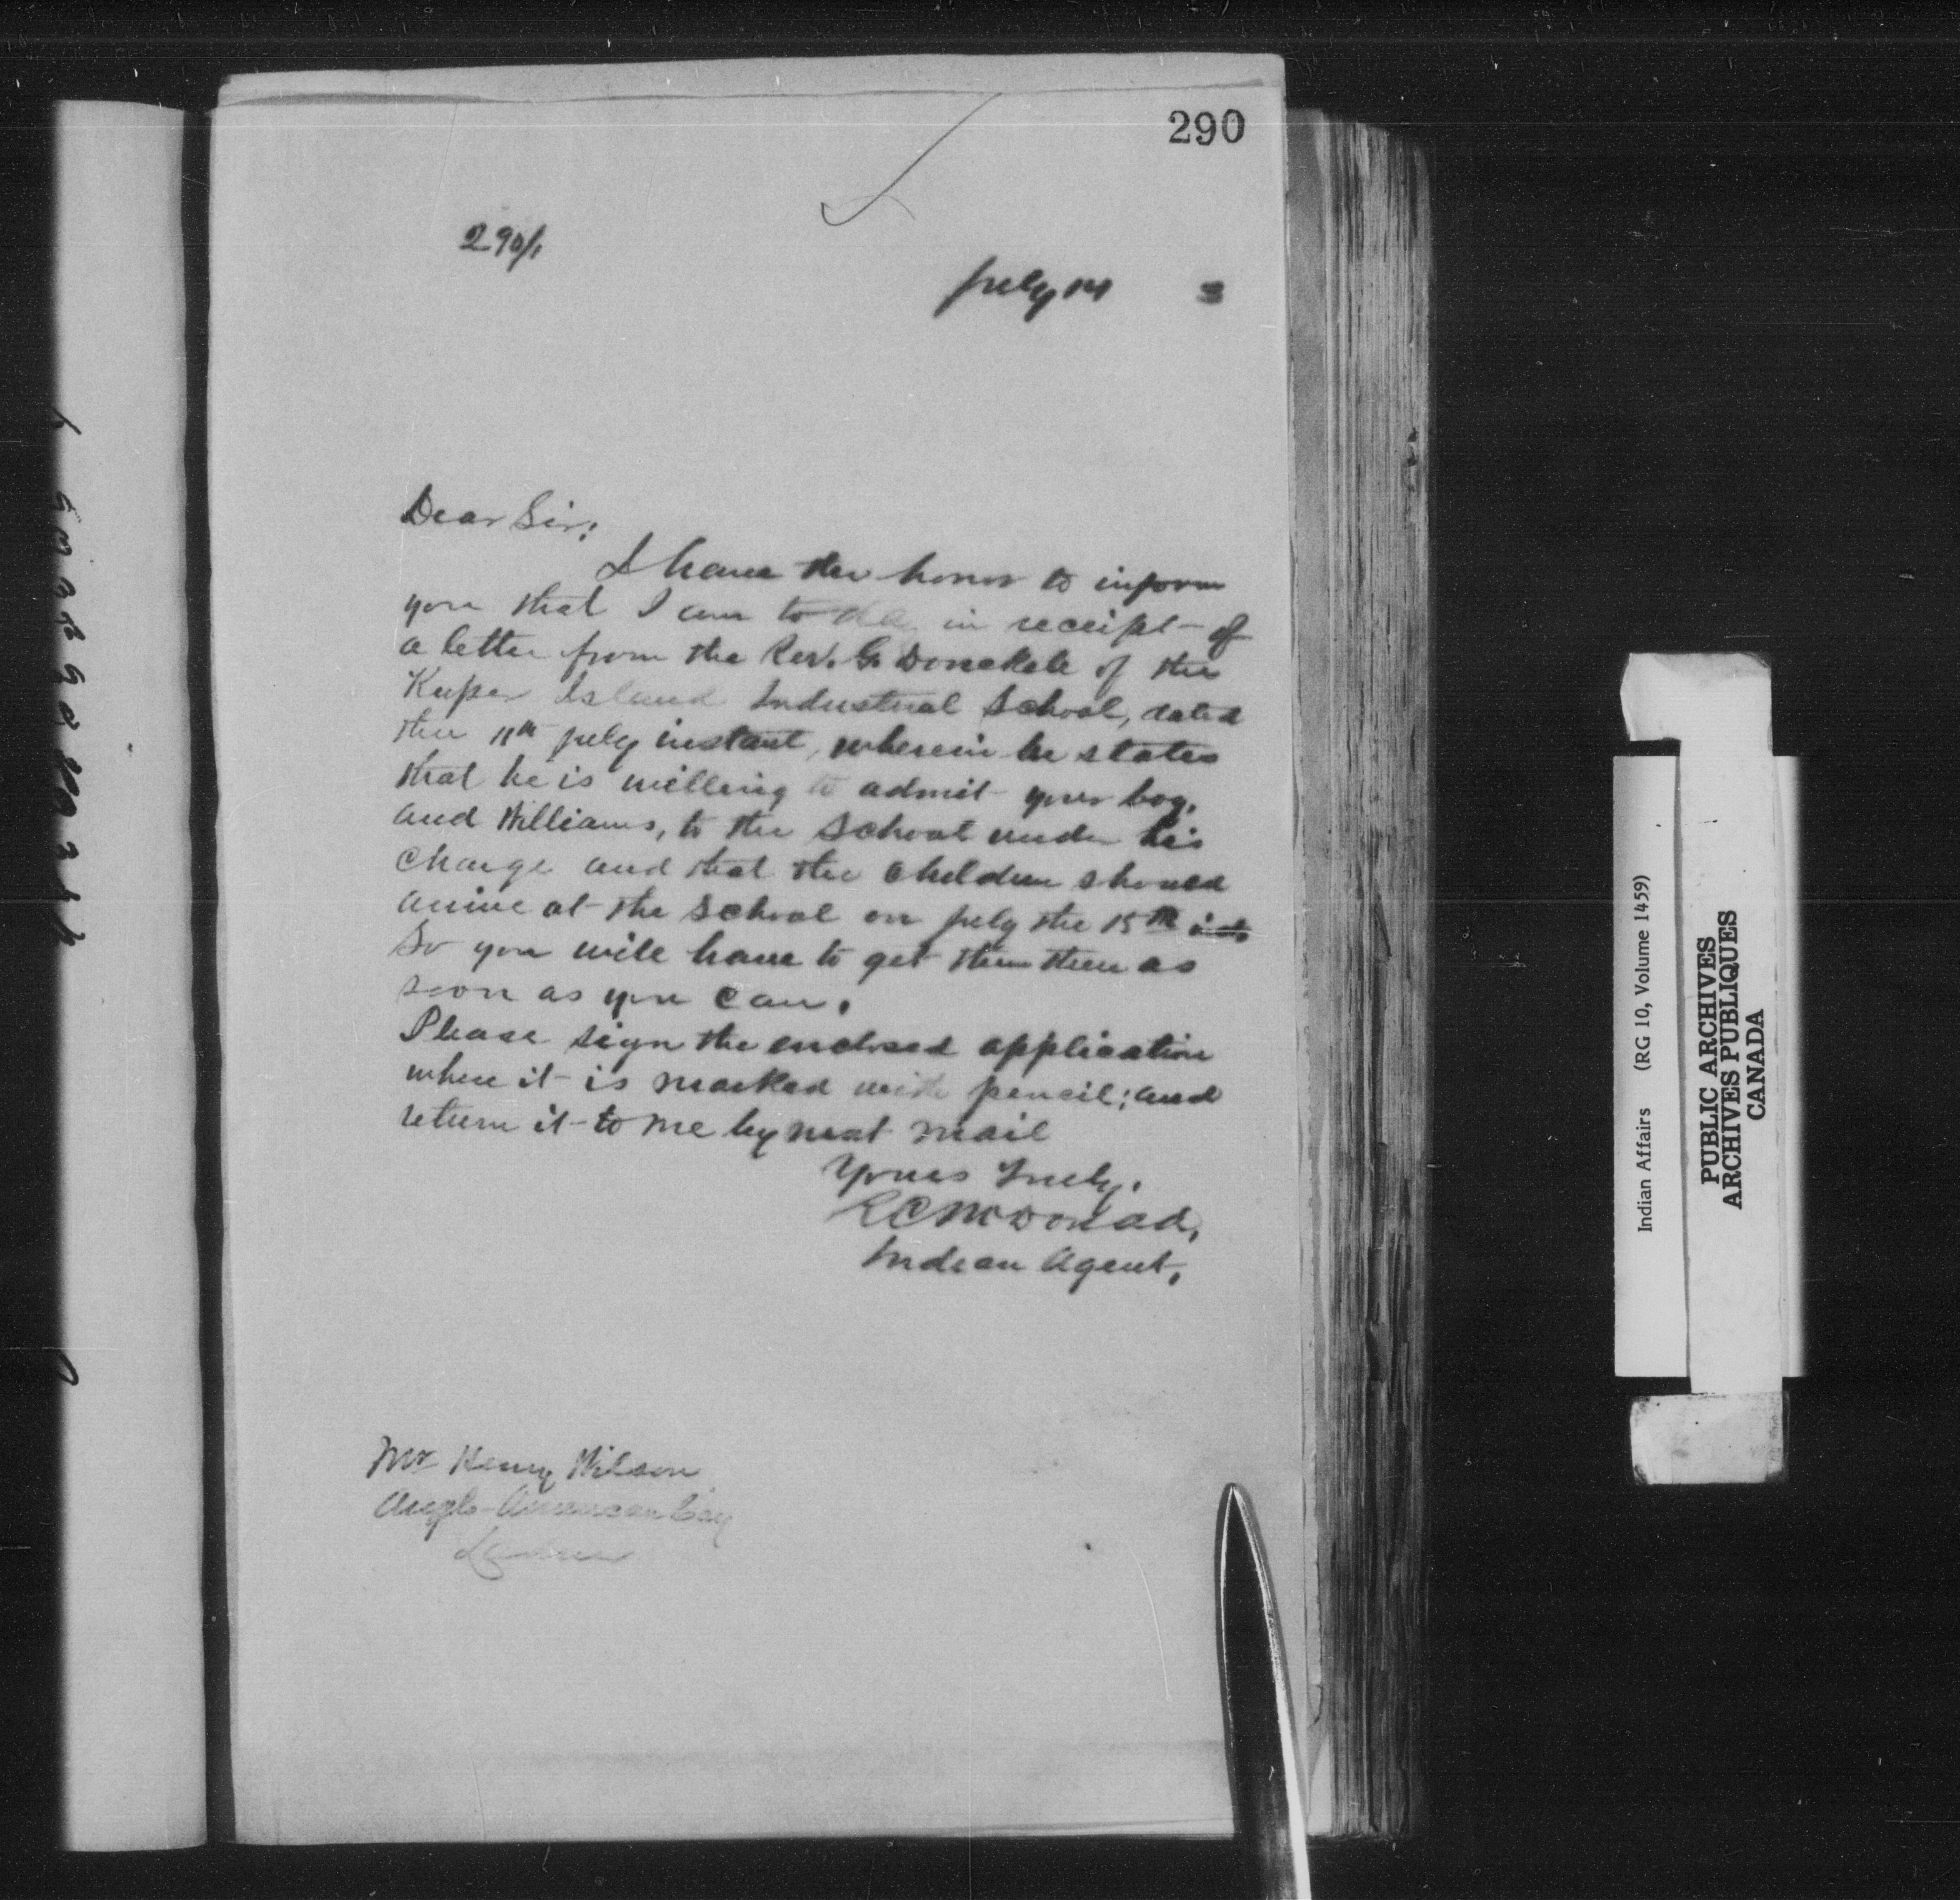 290
290/1
July 14 3
Dear Sir;
I have the honor to inform
you that I am to day in receipt of
a letter from the Rev. G. Donckele of the
Kuper Island Industrial School, dated
the 11th July instant, wherein he states
that he is willing to admit your boy,
and Williams, to the School under his
charge and that the children should
arrive at the School on July the 15th
So you will have to get them there as
soon as you can.
Please sign the enclosed application
where it is marked with pencil; and
return it to me by next mail
Yours Truly,
R C McDonald,
Indian Agent,
Mr Henry Wilson
Anglo-American Coy
Indian Affairs (RG 10, Volume 1459)
PUBLIC ARCHIVES
ARCHIVES PUBLIQUES
CANADA